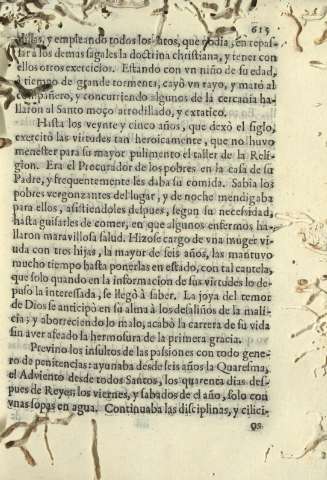 615
dillas, y empleando todos los ratos, que podia, en repas-
sar a los demas sagales la doctrina christiana, y tener con
ellos otros exercicios. Estando con vn niño de su edad,
a tiempo de grande tormenta, cayò vn rayo, y matò al
compañero, y concurriendo algunos de la cercania ha-
llaron al Santo moço arrodillado, y extatico.
Hasta los veynte y cinco años, que dexò el siglo,
exercitò las virtudes tan heroicamente, que no huvo
menester para su mayor pulimento el taller de la Reli-
gion. Era el Procurador de los pobres en la casa de su
Padre, y frequentemente les daba su comida. Sabia los
pobres vergonzantes del lugar, y de noche mendigaba
para ellos, asistiendoles despues, segun su necesidad,
hasta guisarles de comer, en que algunos enfermos ha-
llaron maravillosa salud. Hizose cargo de vna muger viu-
da con tres hijas, la mayor de seis años, las mantuvo
mucho tiempo hasta ponerlas en estado, con tal cautela,
que solo quando en la informacion de sus virtudes lo de-
puso la interessada, se llegò à saber. La joya del temor
de Dios se anticipò en su alma à los desaliños de la mali-
cia; y aborreciendo lo malo, acabò la carrera de su vida
sin aver afeado la hermosura de la primera gracia.
Previno los insultos de las passiones con todo gene-
ro de penitencias: ayunaba desde seis años la Quaresma,
el Adviento desde todos Santos, los quarenta dias des-
pues de Reyes, los viernes, y sabados de el año, solo con
vnas sopas en agua. Continuaba las disciplinas, y cilici-
os